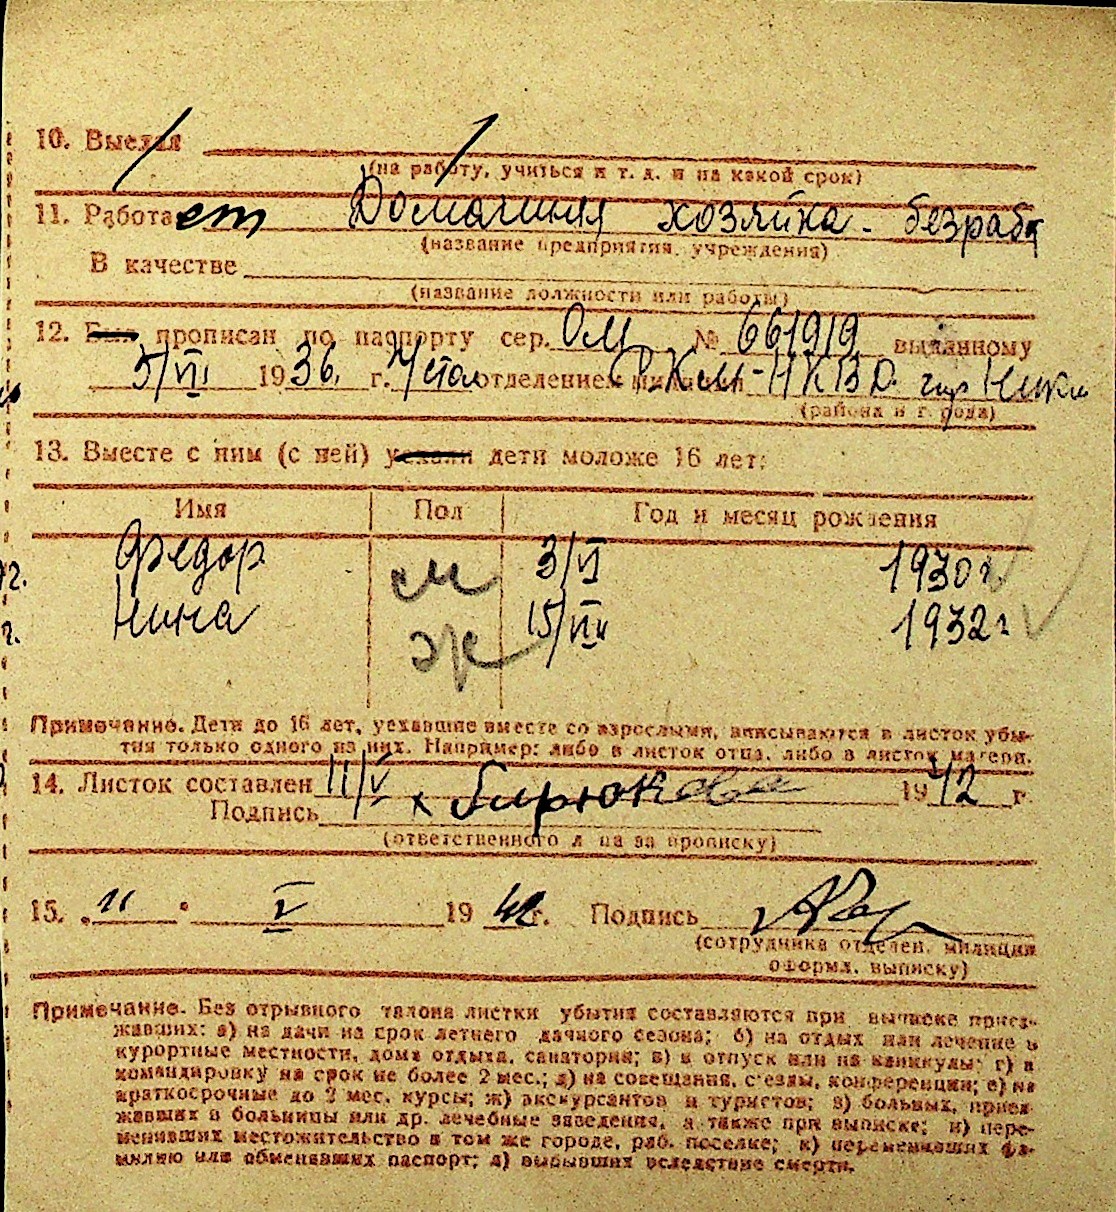 10. Выехал
(на работу, учиться и т. д. и на какой срок)
11. Работает Домашняя хозяйка - безраб
(название предприятия, учреждения)
В качестве
(название должности или работы)
12. Был прописан по паспорту сер. ОМ № 661919 выданному
5/VI 1936 г. 4 стол отделением милиции РКМ-НКВД гор
(района и города)
13. Вместе с ним (с ней) уехали дети моложе 16 лет:
Имя Пол Год и месяц рождения
Федор м 3/VI 1930 г.
Нина ж 15/VII 1932 г
Примечание. Дети до 16 лет, уехавшие вместе со взрослыми, вписываются в листок убы-
тия только одного из них. Например: либо в листок отца, либо в листок матери.
14. Листок составлен 11/V 1942 г.
Подпись х Бирюкова
(ответственного л ца за прописку)
15. „11 " V 1942 г. Подпись
(сотрудника отделен. милиции
оформл. выписку)
Примечание. Без отрывного талона листки убытия составляются при выписке приез-
жавших: а) на дачи на срок летнего дачного сезона; б) на отдых или лечение в
курортные местности, дома отдыха, санатории; в) в отпуск или на каникулы; г) в
командировку на срок не более 2 мес.; д) на совещания, с'езды, конференции; е) на
краткосрочные до 2 мес. курсы; ж) экскурсантов и туристов; з) больных, приез-
жавших в больницы или др. лечебные заведения, а также при выписке; и) пере-
менивших местожительство в том же городе, раб. поселке; к) переменивших фа-
милию или обменявших паспорт; л) выбывших вследствие смерти.